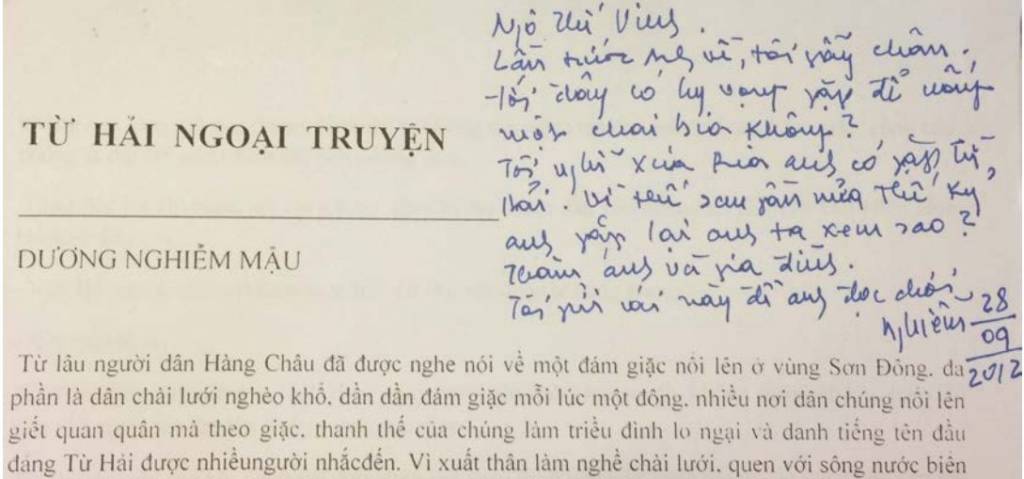 Ngô Thế Vinh.
Lần trước anh về, tôi gãy chân.
Tới đây có hy vọng gặp để uống
một chai bia không?
Tôi nghĩ xưa kia anh có gặp Từ
Hải vì thế sau gần nửa thế kỷ
anh gặp lại anh ta xem sao?
Thăm anh và gia đình.
Tôi gửi cái này để anh đọc chơi
Nghiễm 28
09
2012
TỪ HẢI NGOẠI TRUYỆN
DƯƠNG NGHIỄM MẬU
Từ lâu người dân Hàng Châu đã được nghe nói về một đám giặc nổi lên ở vùng Sơn Đông. đa
phần là dân chài lưới nghèo khổ. dần dần đám giặc mỗi lúc một đông. nhiều nơi dân chúng nổi lên
giết quan quân mà theo giặc. thanh thế của chúng làm triều đình lo ngại và danh tiếng tên đầu
đảng Từ Hải được nhiềungười nhắcđến. Vì xuất thân làm nghề chài lưới. quen với sông nước biên